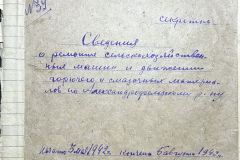 №39.
секретно.
Сведения
о ремонте сельскохозяйствен-
ных машин и движении
горючего и смазочных материа-
лов по Александрофельскому р-ну
начато 7 мая 1942г. кончено 6 августа 1942г.